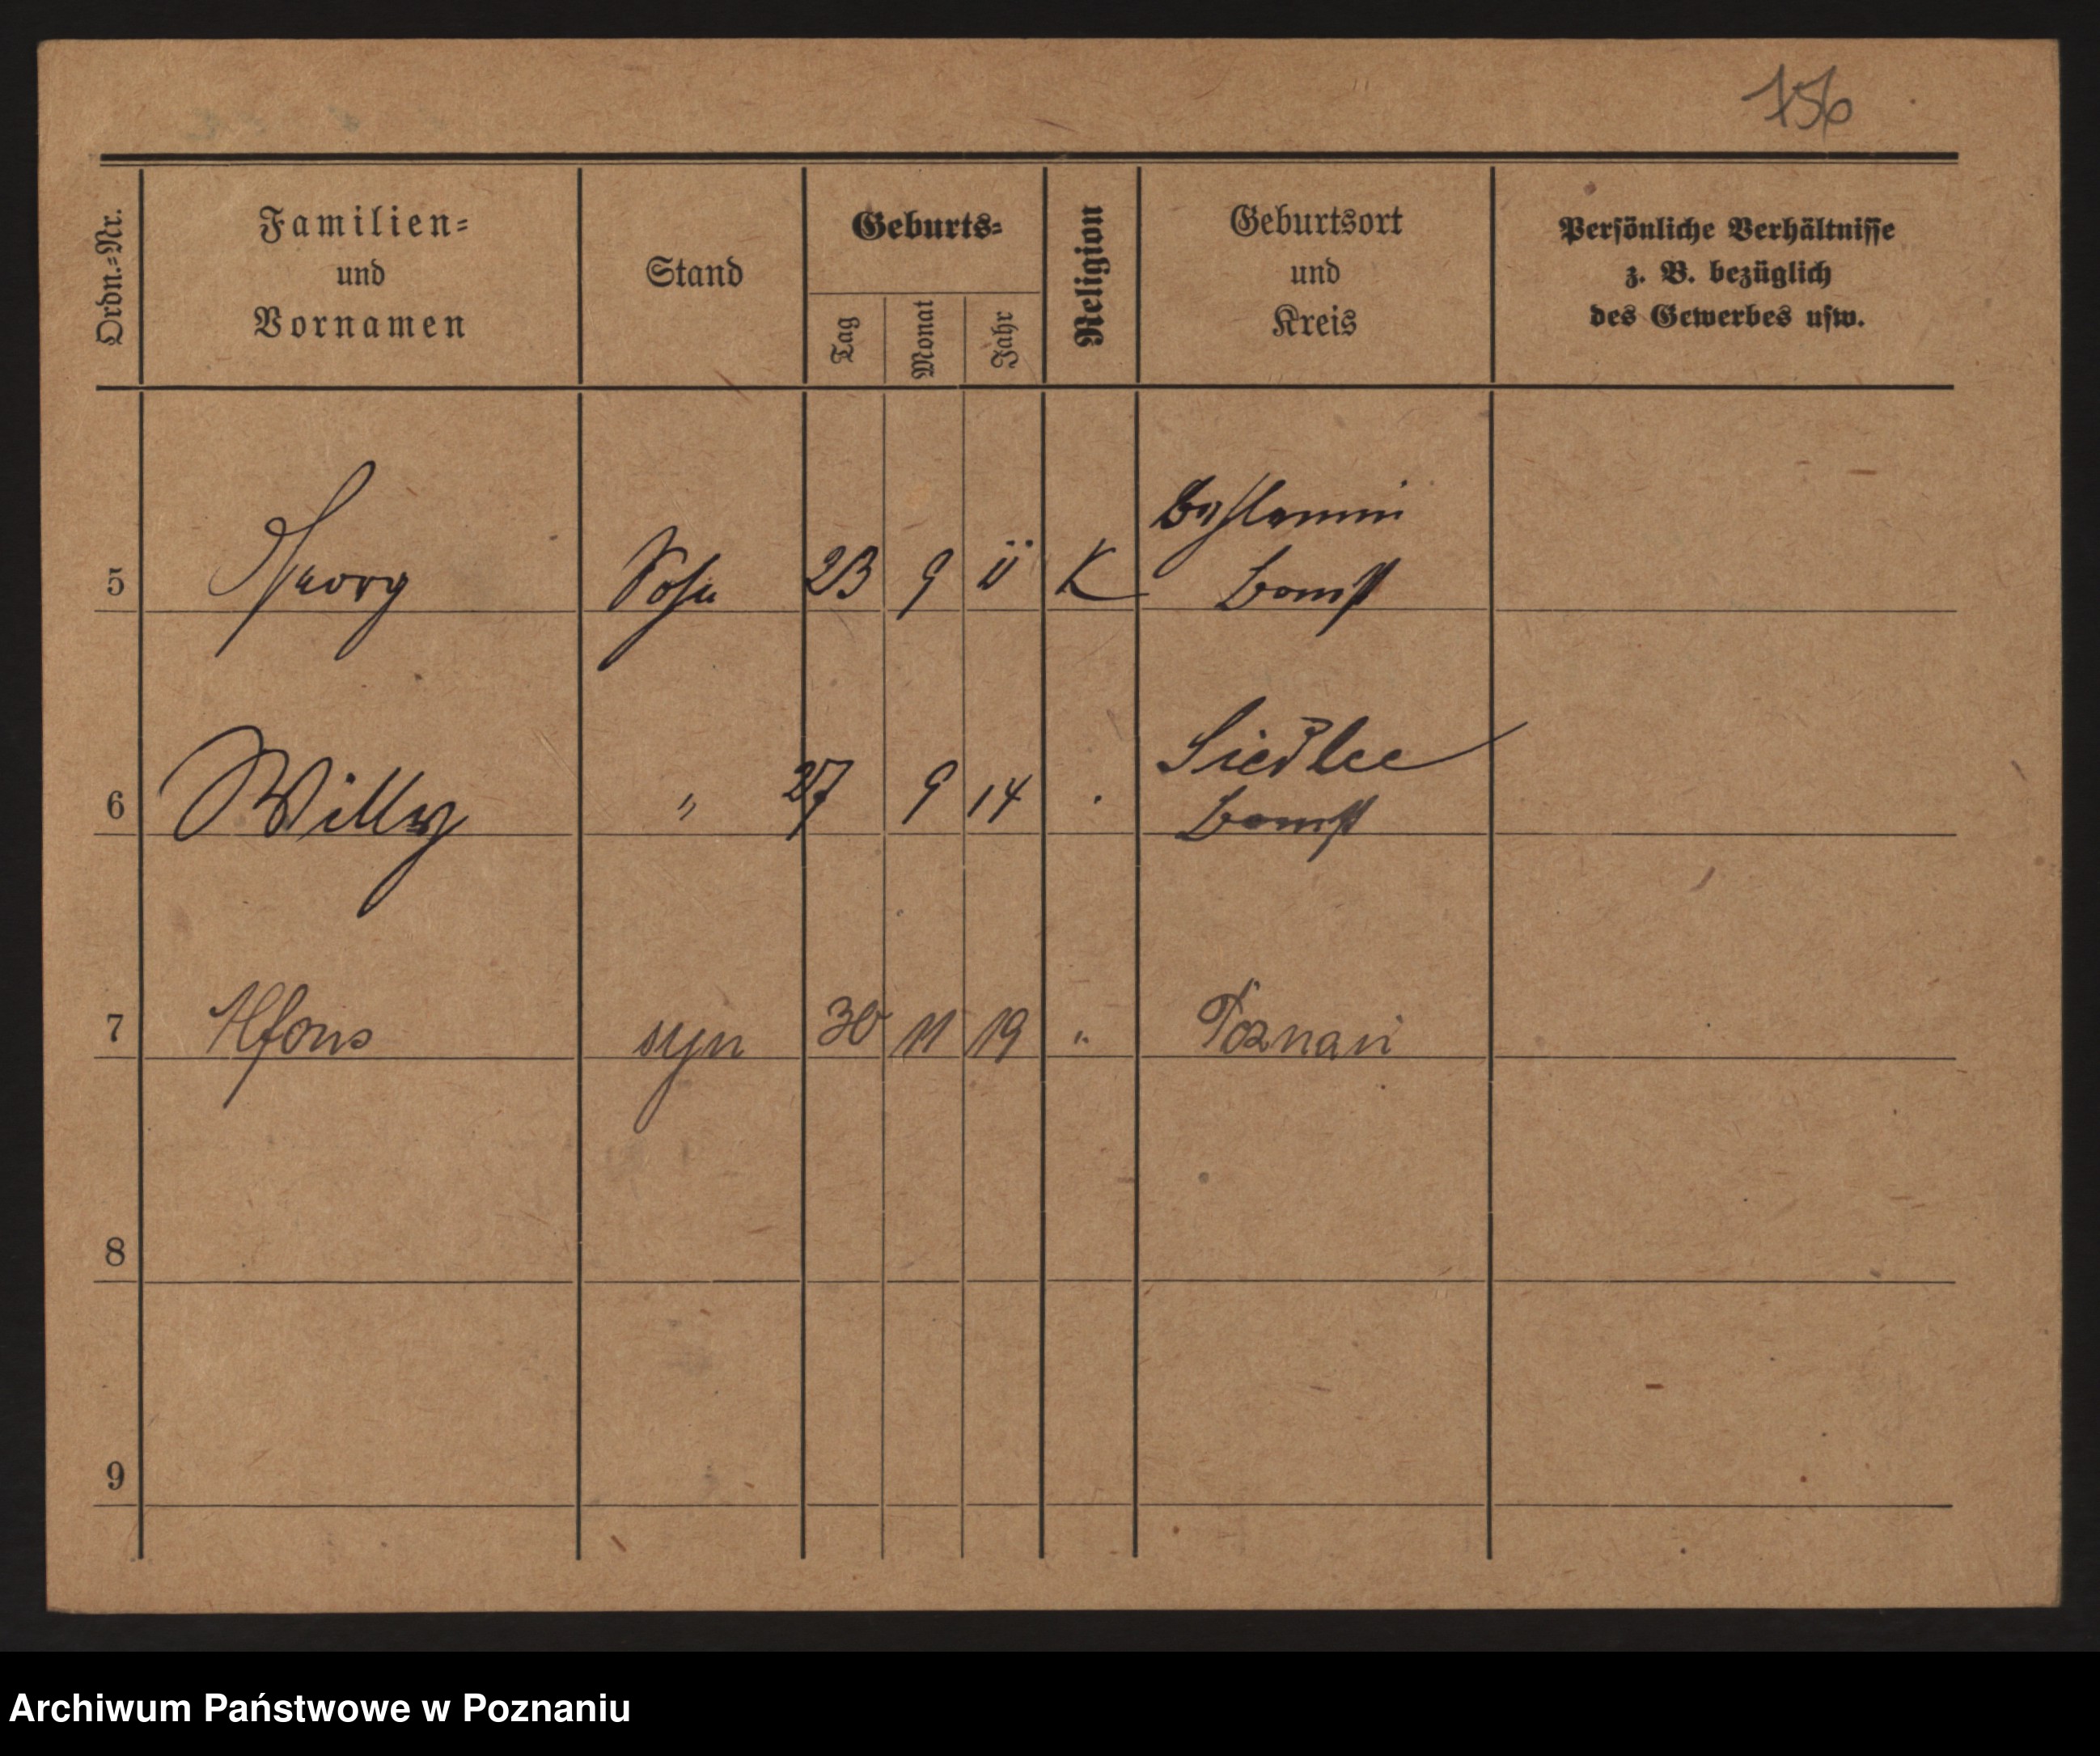 156
Ordn.=Nr.
Familien=
und
Vornamen
Stand
Geburts=
Tag
Monat
Jahr
Religion
Geburtsort
und
Kreis
Persönliche Verhältnisse
z. B. bezüglich
des Gewerbes usw.
5 Georg Sohn 23 9 11 K
Bomst
Siedlec
6 Willy " 27 9 14
Bomst
7 Alfons syn 30 11 19 " Poznań
8
9
Archiwum Państwowe w Poznaniu